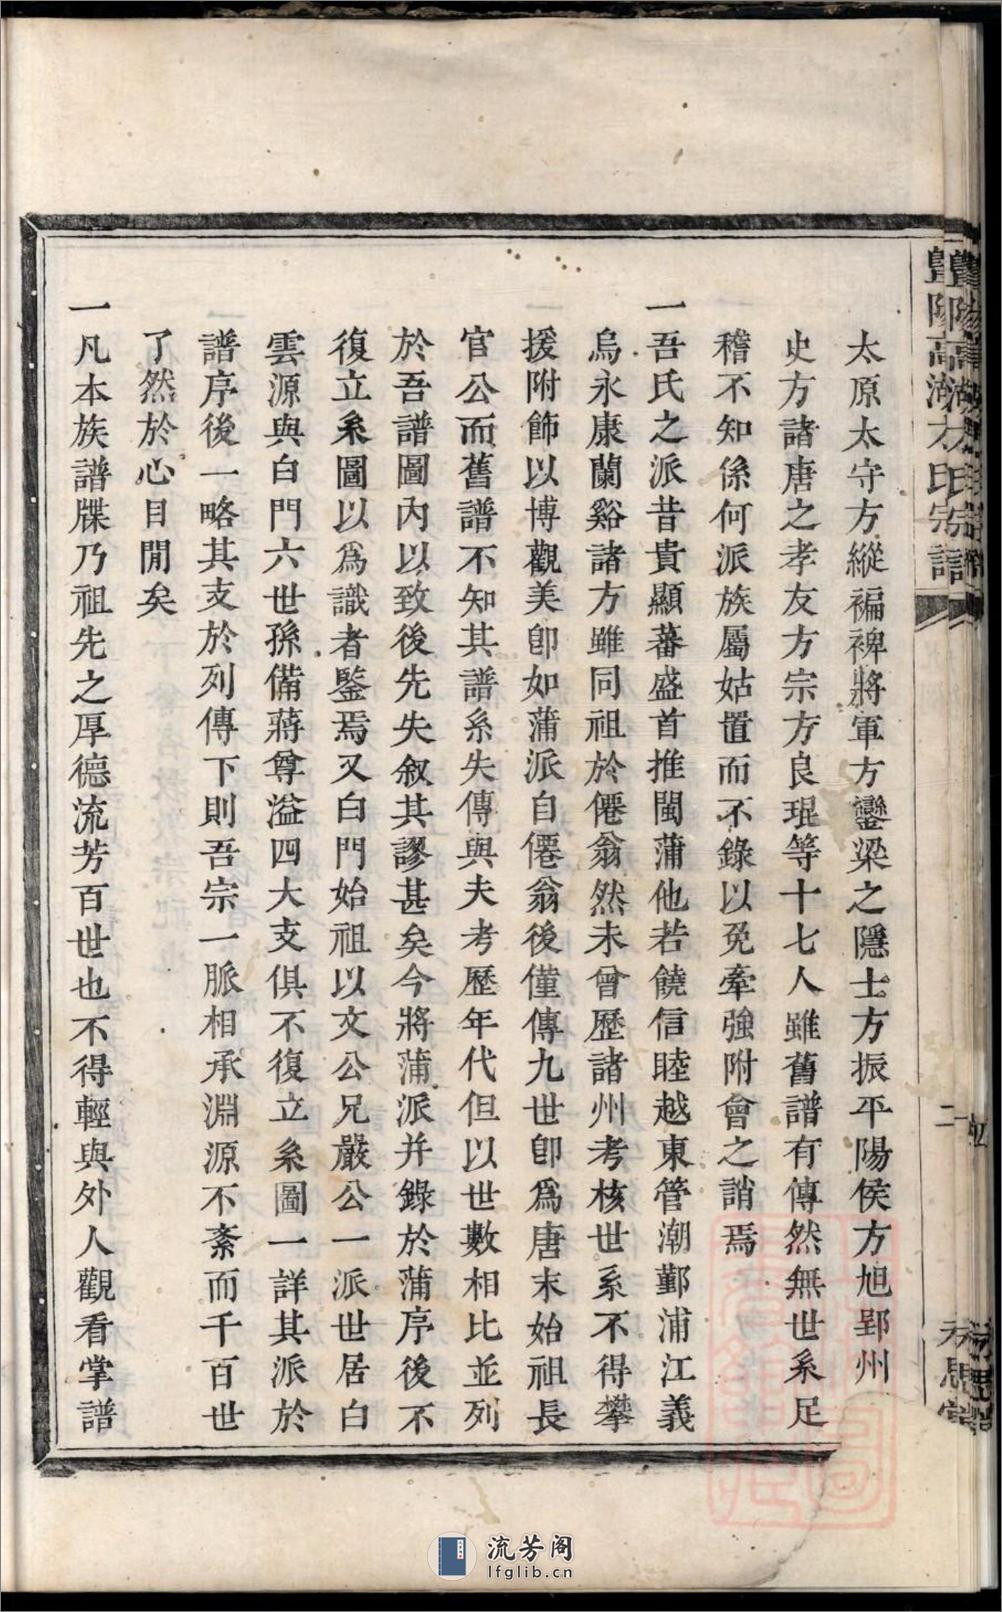 太原太守方縱褊裨將軍方鑾梁之隱士方振平陽侯方旭郢州
史方諸唐之孝友方宗方良琨等十七人雖舊譜有傳然無世系足
稽不知係何派族屬姑置而不錄以免牽強附會之誚焉
一吾氏之派昔貴顯蕃盛首推閩蒲他若饒信睦越東管潮鄞浦江義
烏永康蘭谿諸方雖同祖於僊翁然未曾歷諸州考核世系不得攀
援附飾以博觀美卽如蒲派自僊翁後僅傳九世卽爲唐末始祖長
官公而舊譜不知其譜系失傳與夫考歷年代但以世數相比並列
於吾譜圖內以致後先失叙其謬甚矣今將蒲派并錄於蒲序後不
復立系圖以爲識者鑒焉又白門始祖以文公兄嚴公一派世居白
雲源與白門六世孫備蔣尊溢四大支俱不復立系圖一詳其派於
譜序後一略其支於列傳下則吾宗一脈相承淵源不紊而千百世
了然於心目閒矣
一凡本族譜牒乃祖先之厚德流芳百世也不得輕與外人觀看掌譜
暨陽高湖方氏宗譜
二
流芳阁
lfglib.cn